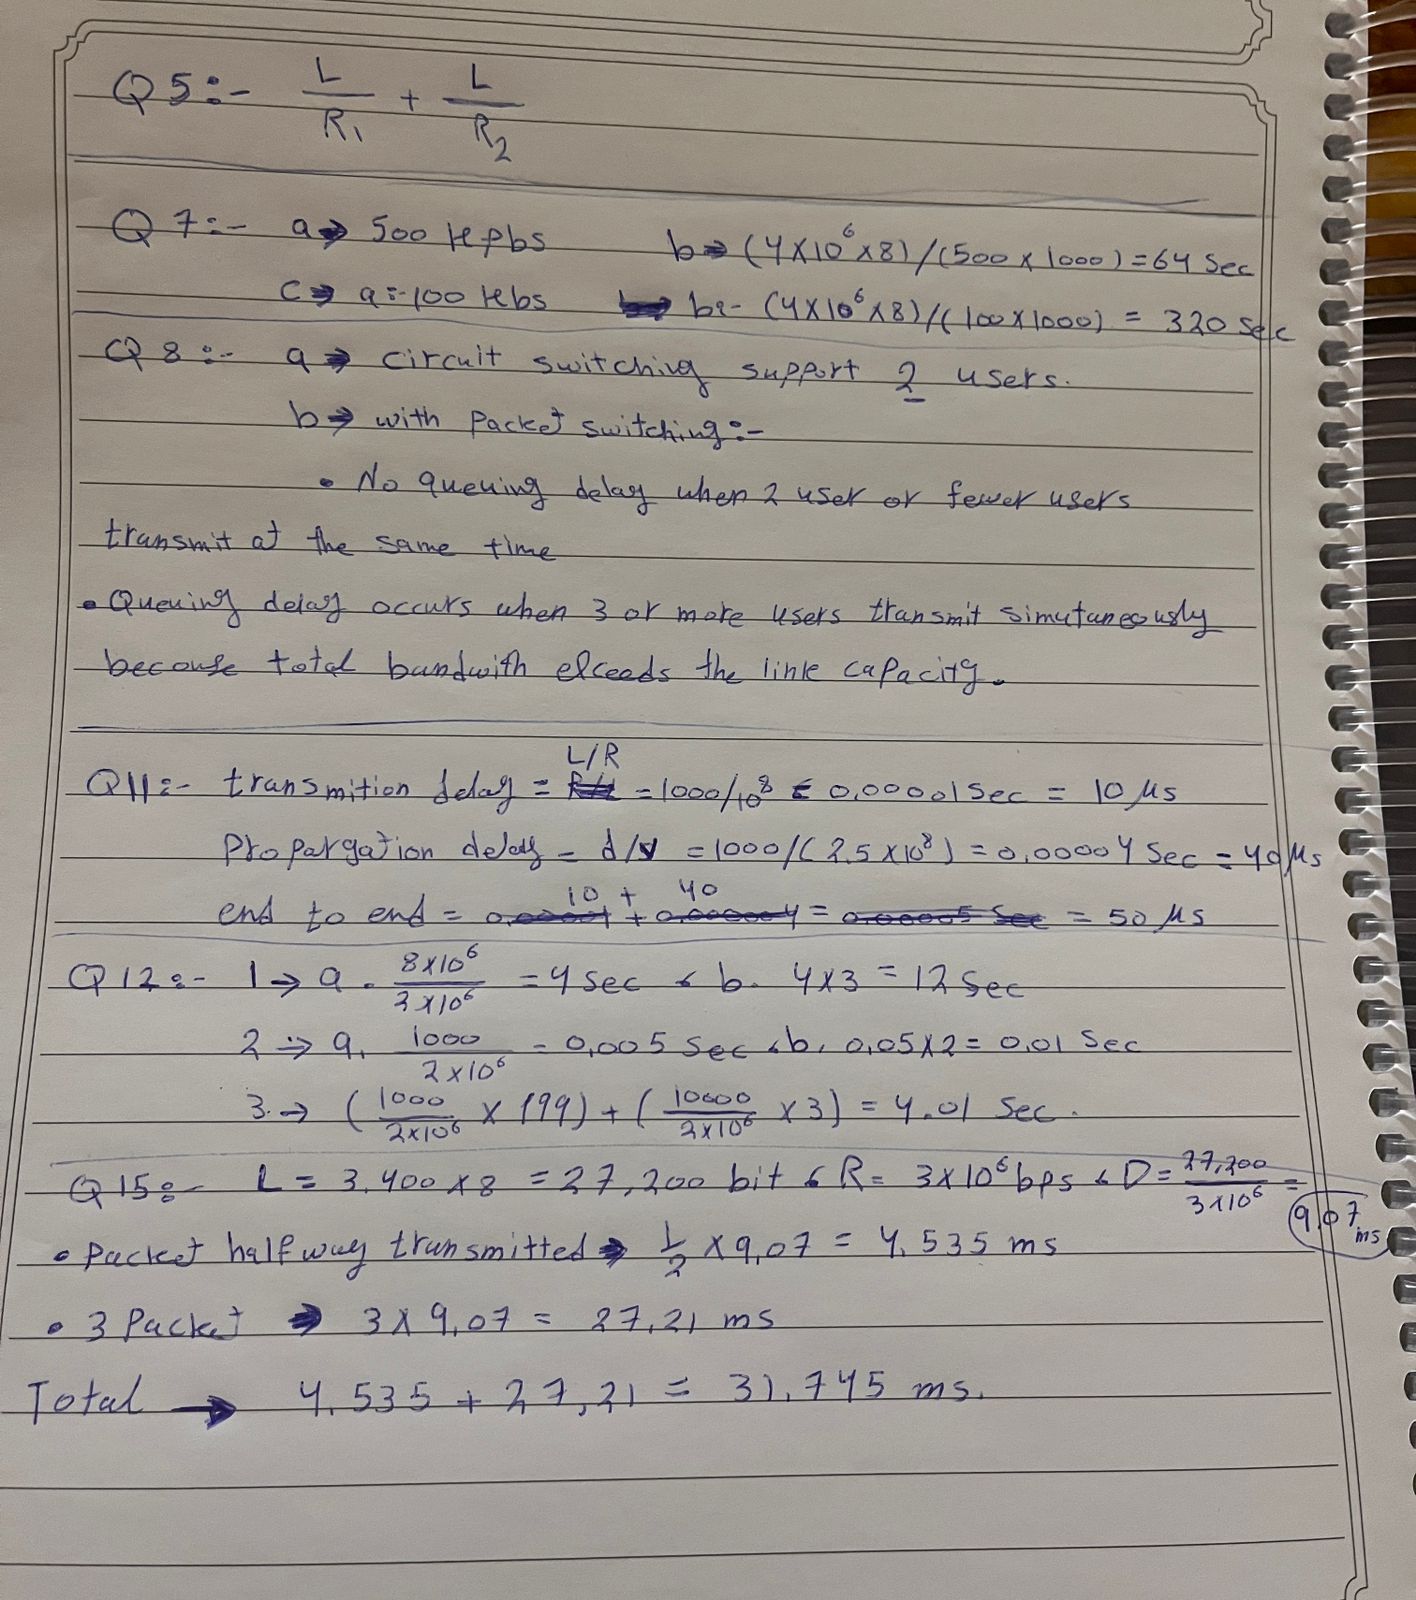 Q5:- L/R1 + L/R2
Q7:- a→ 500 kpbs b→ (4×10^6×8)/(500×1000)=64 Sec
C→ a:-100 kbs b:- (4×10^6×8)/(100×1000) = 320 Sec
Q8:- a→ circuit switching support 2 users.
b→ with Packet switching:-
• No queuing delay when 2 user or fewer users
transmit at the same time
• Queuing delay occurs when 3 or more users transmit simutaneously
becouse total bandwith exceeds the link capacity.
Q11:- transmition delay = L/R = 1000/10^8 = 0,00001 Sec = 10 μs
Propargation delay = d/v = 1000/(2,5×10^8) = 0,00004 Sec = 40 μs
end to end = 10 + 40 = 50 μs
Q12:- 1→ a. 8×10^6/2×10^6 = 4 sec , b. 4×3 = 12 Sec
2→ a. 1000/2×10^6 = 0,005 Sec , b. 0,05×2 = 0,01 Sec
3.→ (1000/2×10^6 × 199) + (10000/2×10^6 × 3) = 4.01 Sec.
Q15:- L = 3,400×8 = 27,200 bit , R = 3×10^6 bps , D = 27,200/3×10^6 = 9,07 ms
• Packet halfway transmitted → 1/2 × 9,07 = 4,535 ms
• 3 Packet → 3×9,07 = 27,21 ms
Total → 4,535 + 27,21 = 31,745 ms.